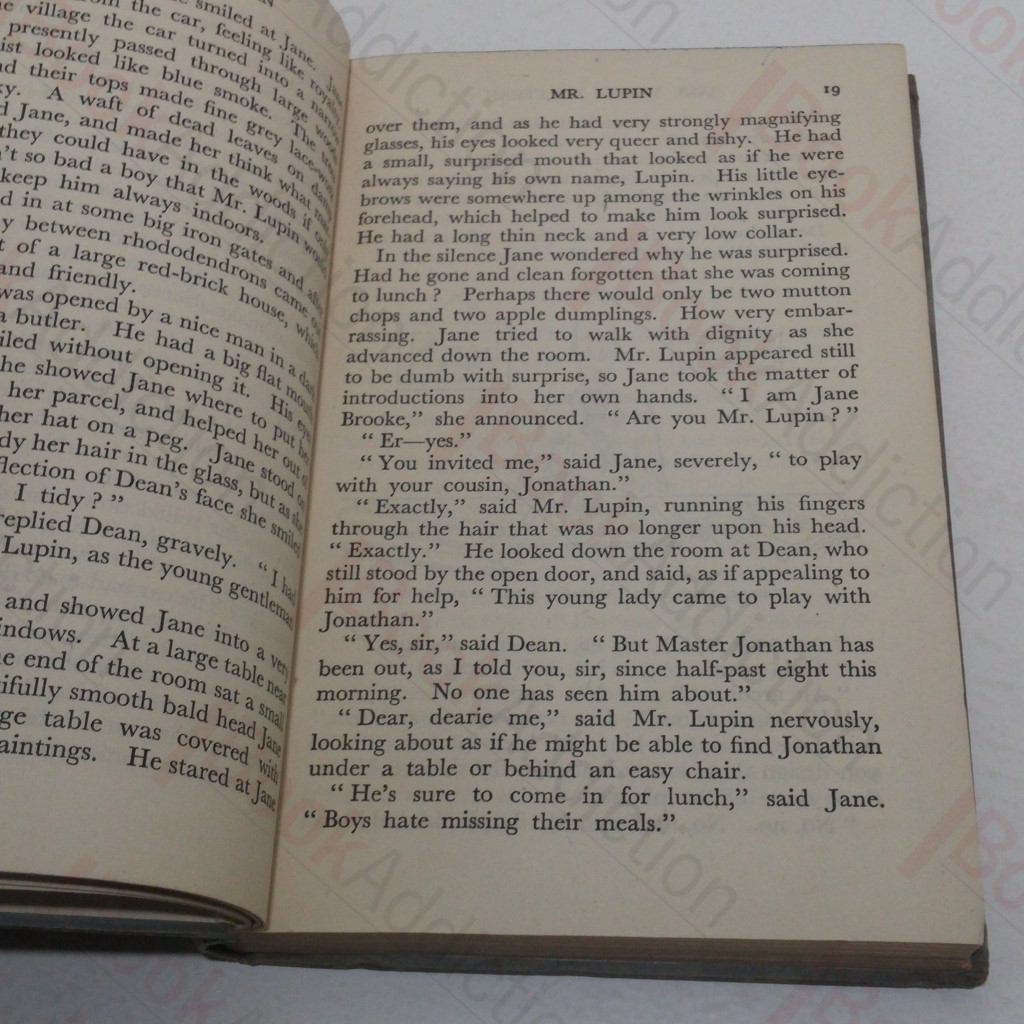 smiled at Jane.
from the car, feeling like
village the car turned into a narrow
presently passed through large woods
looked like blue smoke. The
their tops made fine grey
A waft of dead leaves on
Jane, and made her think what
they could have in the woods if
so bad a boy that Mr. Lupin
keep him always indoors.
in at some big iron gates and
between rhododendrons came
of a large red-brick house,
and friendly.
was opened by a nice man in a
a butler. He had a big flat
without opening it. His
he showed Jane where to put
her parcel, and helped her out
her hat on a peg. Jane stood
her hair in the glass, but as she
of Dean's face she smiled
I tidy ? ”
replied Dean, gravely. “ I had
Lupin, as the young gentleman
and showed Jane into a very
At a large table near
end of the room sat a small
smooth bald head Jane
table was covered with
He stared at Jane
MR. LUPIN 19
over them, and as he had very strongly magnifying
glasses, his eyes looked very queer and fishy. He had
a small, surprised mouth that looked as if he were
always saying his own name, Lupin. His little eye-
brows were somewhere up among the wrinkles on his
forehead, which helped to make him look surprised.
He had a long thin neck and a very low collar.
In the silence Jane wondered why he was surprised.
Had he gone and clean forgotten that she was coming
to lunch ? Perhaps there would only be two mutton
chops and two apple dumplings. How very embar-
rassing. Jane tried to walk with dignity as she
advanced down the room. Mr. Lupin appeared still
to be dumb with surprise, so Jane took the matter of
introductions into her own hands. “ I am Jane
Brooke,” she announced. “ Are you Mr. Lupin ? ”
“ Er—yes.”
“ You invited me,” said Jane, severely, “ to play
with your cousin, Jonathan.”
“ Exactly,” said Mr. Lupin, running his fingers
through the hair that was no longer upon his head.
“ Exactly.” He looked down the room at Dean, who
still stood by the open door, and said, as if appealing to
him for help, “ This young lady came to play with
Jonathan.”
“ Yes, sir,” said Dean. “ But Master Jonathan has
been out, as I told you, sir, since half-past eight this
morning. No one has seen him about.”
“ Dear, dearie me,” said Mr. Lupin nervously,
looking about as if he might be able to find Jonathan
under a table or behind an easy chair.
“ He's sure to come in for lunch,” said Jane.
“ Boys hate missing their meals.”